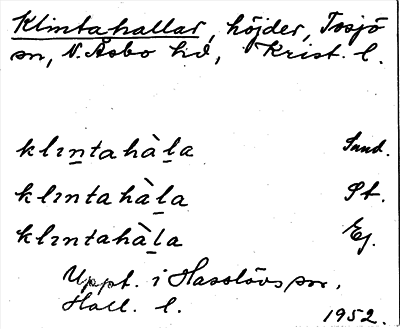 Klintahallar, höjder, Tosjö
sn, N. Åsbo hd, Krist. l.
klɪntahàla Sand.
klɪntahàla St.
klɪntahàla Ej.
Uppt. i Hasslövs sn,
Hall. l.
1952.